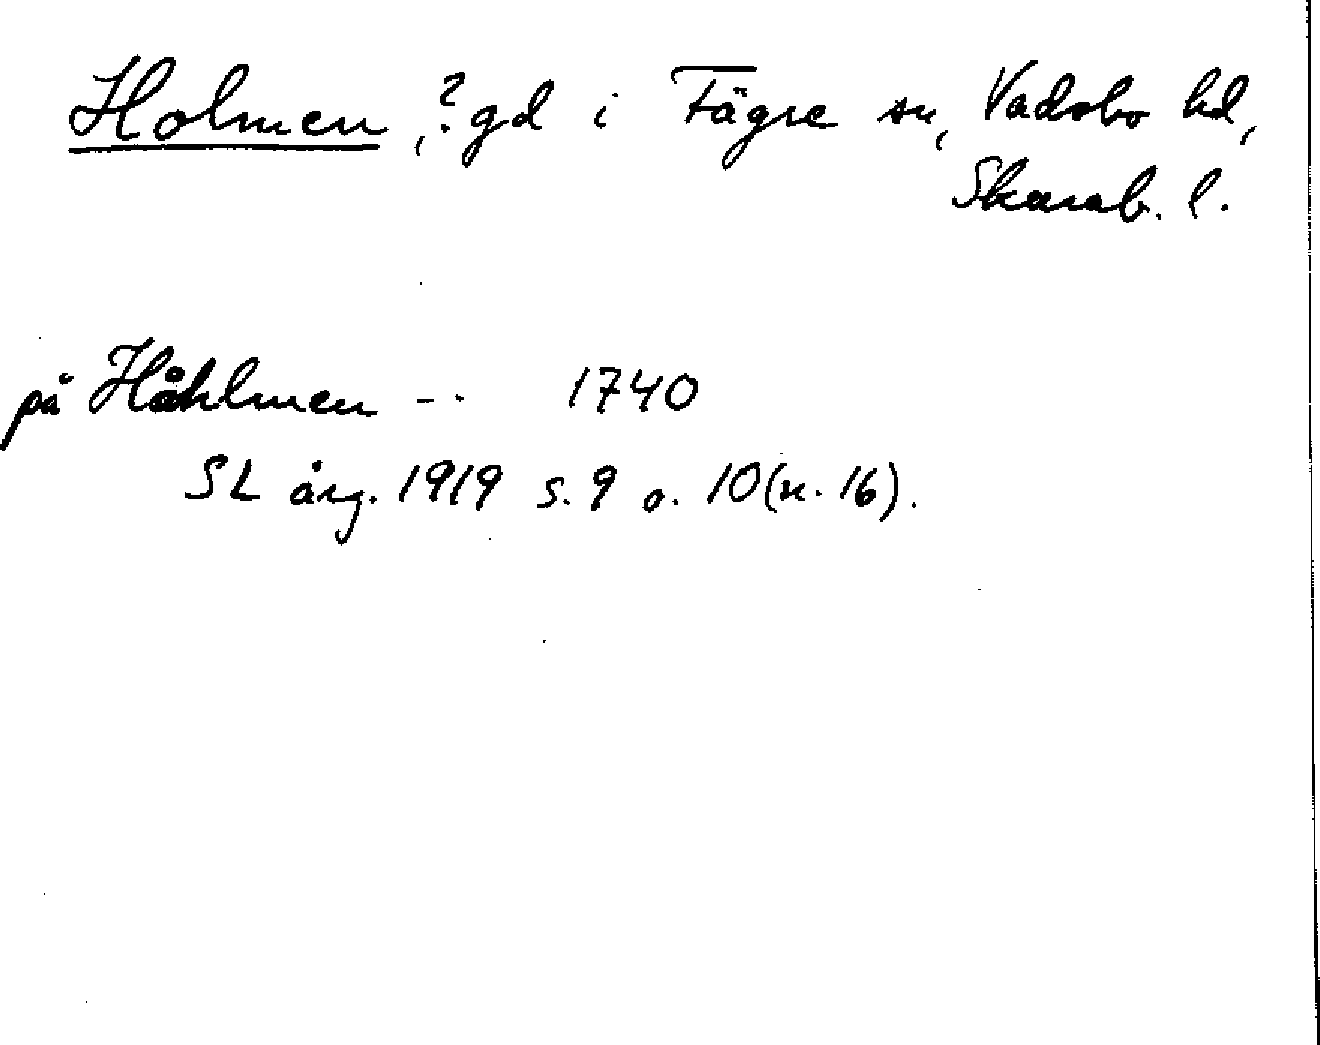 Holmen, ? gd i Fägre sn, Vadsbo hd,
Skarab. l.
på Håhlmen -- 1740
SL årg. 1919 s. 9 o. 10 (n. 16).